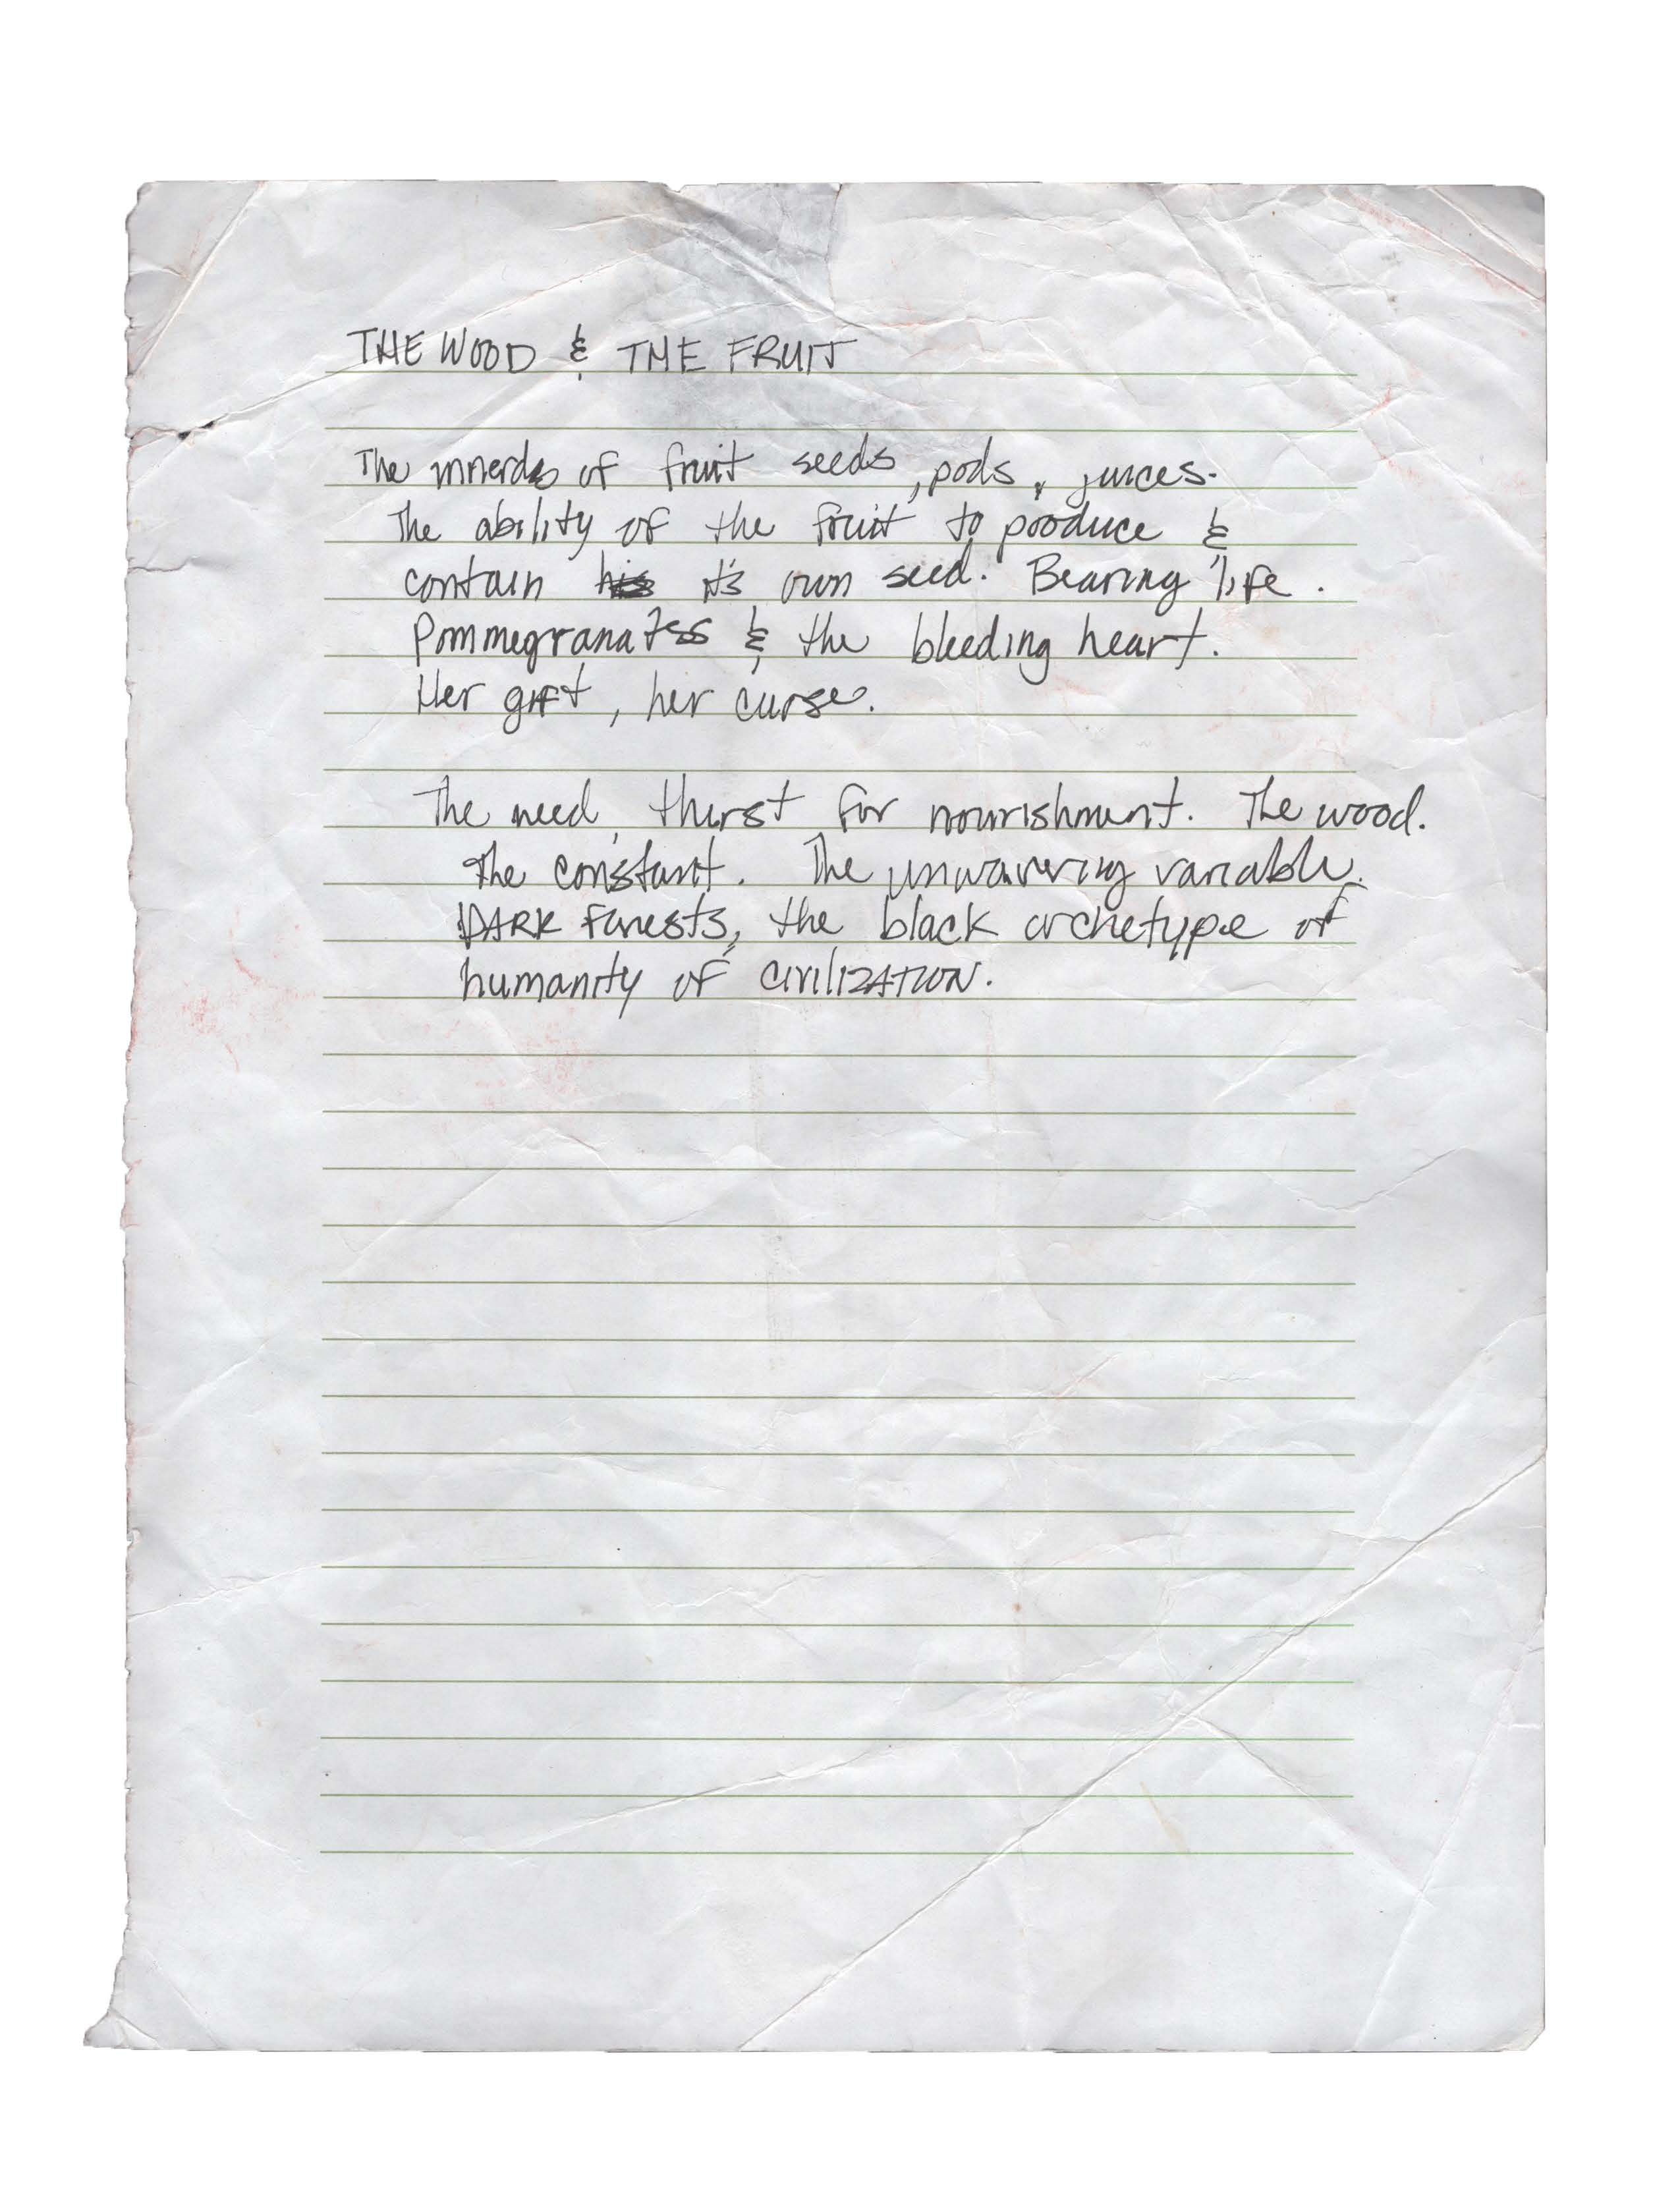 THE WOOD & THE FRUIT
The innerds of fruit seeds, pods, juices.
The ability of the fruit to produce &
contain his it's own seed. Bearing life.
Pommegranates & the bleeding heart.
Her gift, her curse.
The need, thirst for nourishment. The wood.
The constant. The unwavering variable.
DARK Forests, the black archetype of
humanity of civilizATION.